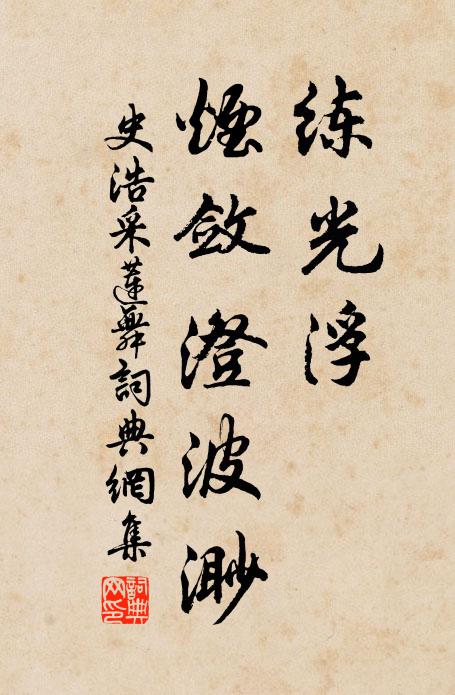 练光浮
烟敛澄波渺
史浩采蓮舞詞典網集
詞典网印